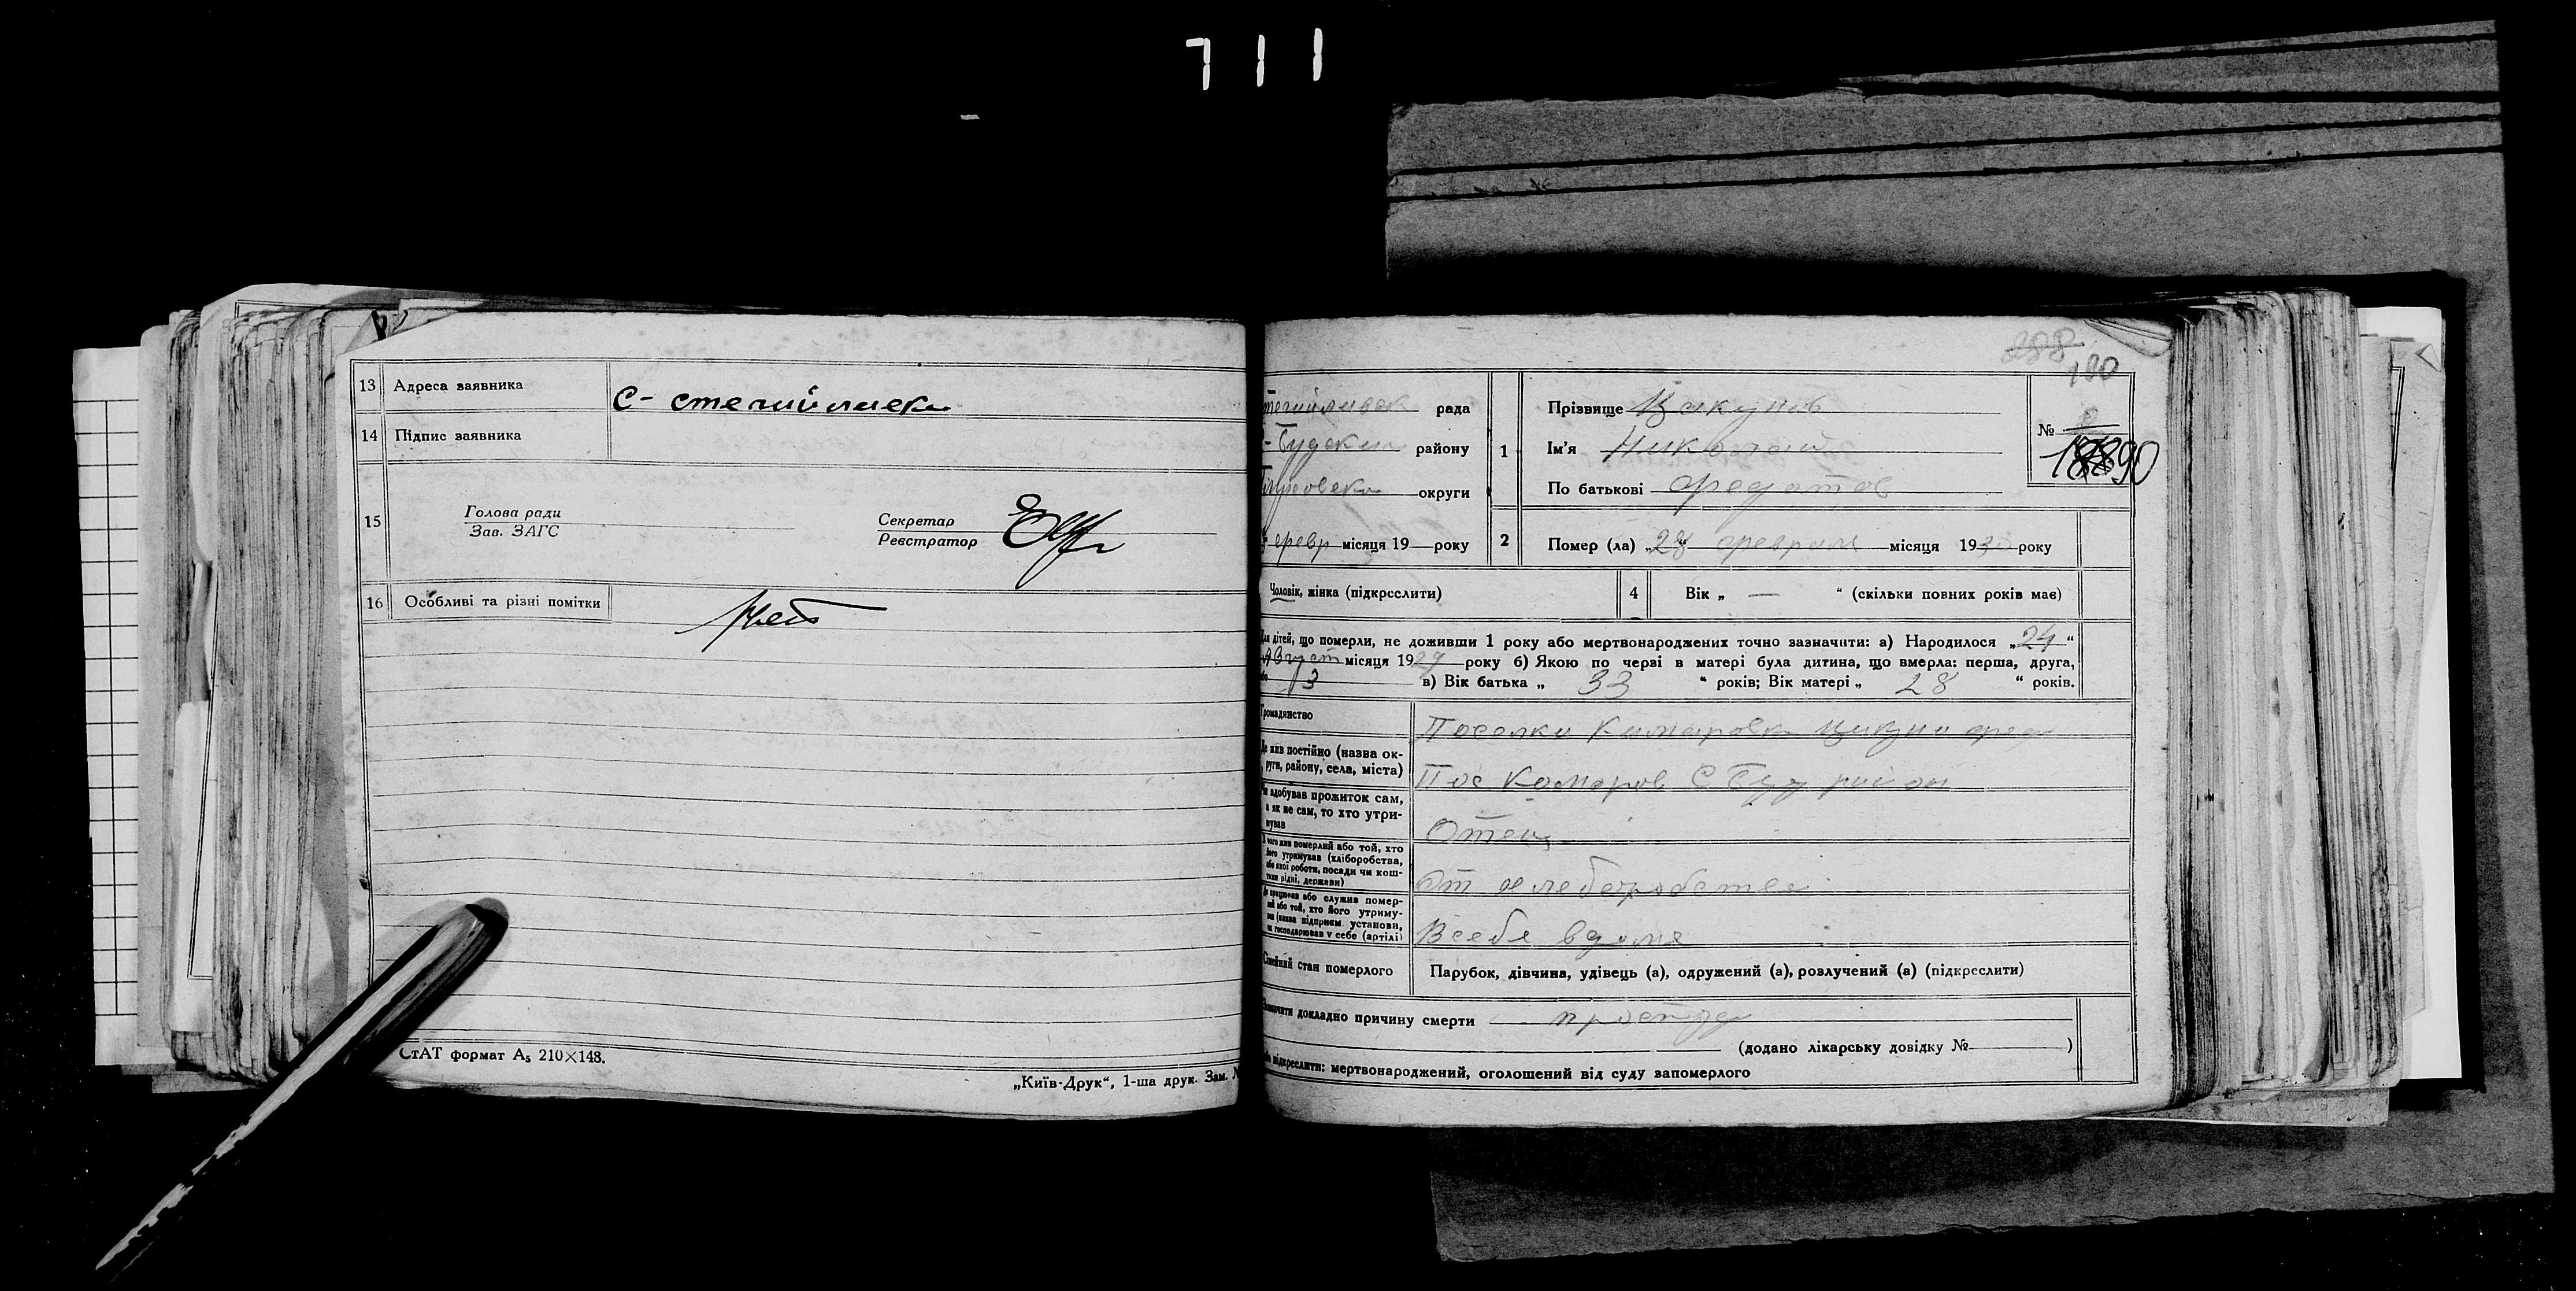 711
13 Адреса заявника
С- стегийлиски
14 Підпис заявника
15 Голова ради
Зав. ЗАГС
Секретар
Реєстратор
16 Особливі та різні помітки
Нет
СтАТ формат А5 210×148.
„Київ-Друк“, 1-ша друк. Зам. №
288
190
рада
-Будски району
округи
февр місяця 19 року
1 Прізвище Цикунов
Ім'я Николай
По батькові Федотов
№ 8
90
2 Помер (ла) „28“ февраля місяця 1930 року
Чоловік, жінка (підкреслити)
4 Вік „ — “ (скільки повних років має)
Для дітей, що померли, не доживши 1 року або мертвонароджених точно зазначити: а) Народилося „24“
Август місяця 1929 року б) Якою по черзі в матері була дитина, що вмерла: перша, друга,
або 3 в) Вік батька „ 33 “ років; Вік матері „ 28 “ років.
Громадянство
Поселки Камаровка
Де жив постійно (назва ок-
руги, району, села, міста)
Пос Комаров С Буд район
Чи здобував прожиток сам,
а як не сам, то хто утри-
мував
Отец
З чого жив померлий або той, хто
його утримував (хліборобства,
або якої роботи, посади чи кош-
тами рідні, держави)
От хлеборобства
Де працював або служив помер-
лий або той, хто його утриму-
вав (назва підприєм. установи,
чи господарював у себе (артілі)
В себя вдома
Сімейний стан померлого
Парубок, дівчина, удівець (а), одружений (а), розлучений (а) (підкреслити)
Зазначити докладно причину смерти простуд
(додано лікарську довідку № )
або підкреслити: мертвонароджений, оголошений від суду запомерлого